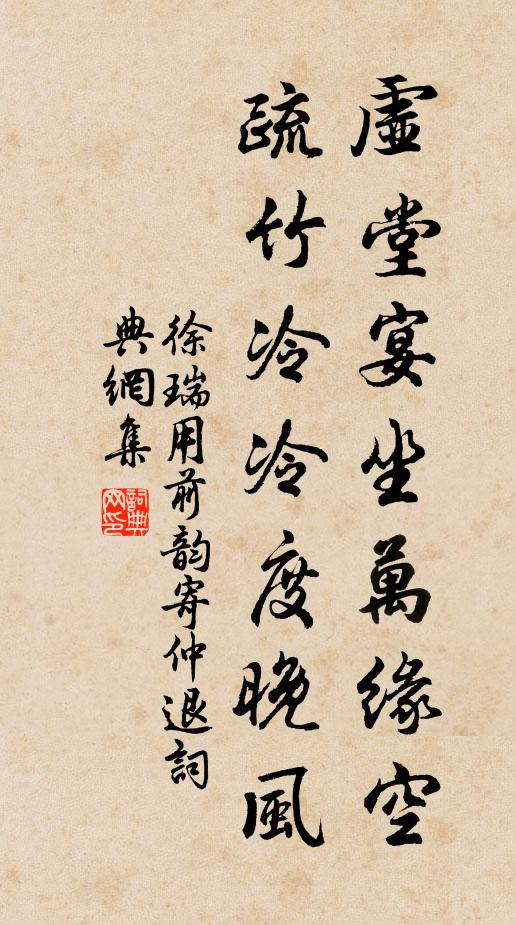 虛堂宴坐萬緣空
疏竹冷冷度晚風
徐瑞用前韵寄仲退詞
典網集
詞典
网印